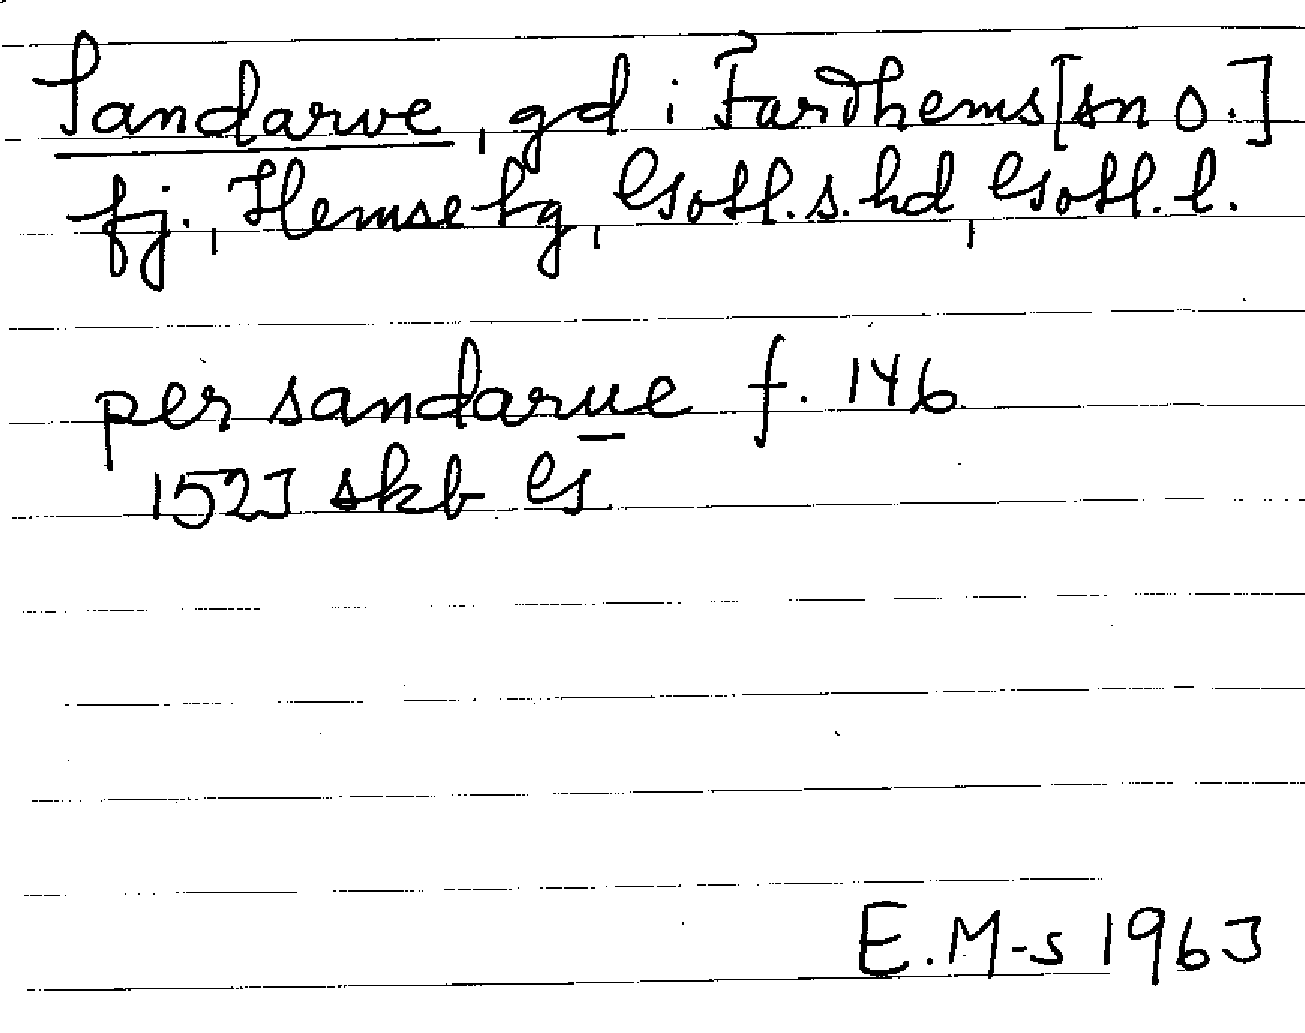 Sandarve, gd i Fardhems [sn o.]
fj., Hemse tg, Gotl. s. hd, Gotl. l.
per sandarue f. 146
1523 skb G
E. M-s 1963